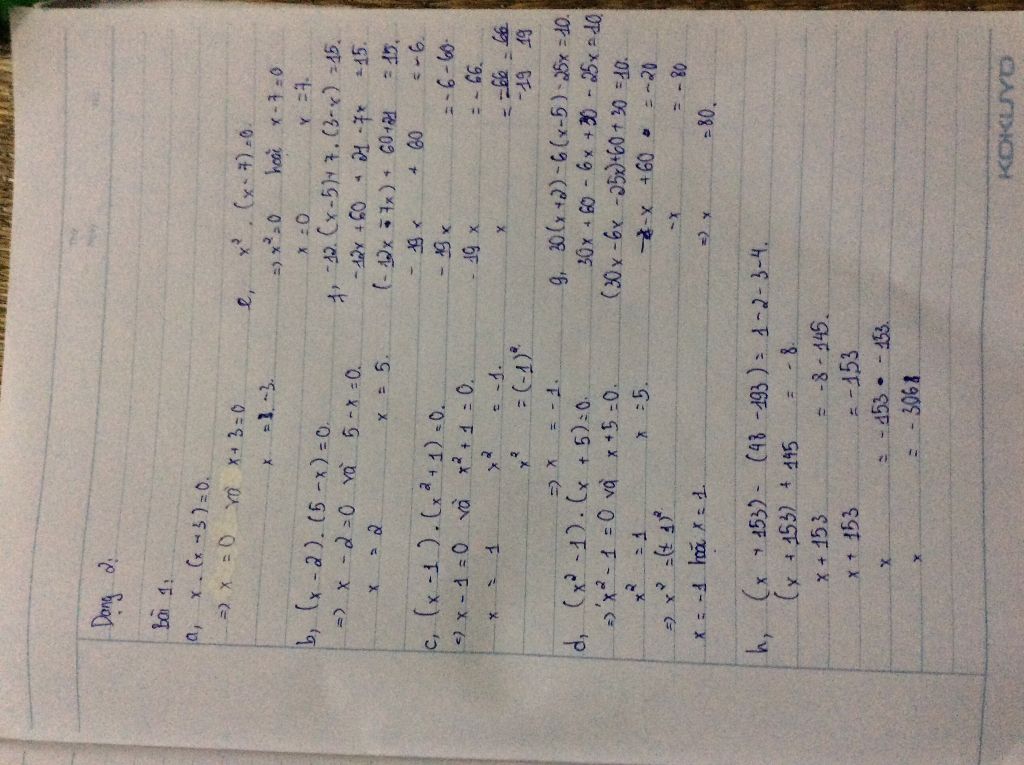 Dạng 2:
Bài 1:
a, x . (x + 3) = 0.
=> x = 0 và x + 3 = 0
x = -3.
b, (x - 2) . (5 - x) = 0.
=> x - 2 = 0 và 5 - x = 0.
x = 2 x = 5.
c, (x - 1) . (x² + 1) = 0.
=> x - 1 = 0 và x² + 1 = 0.
x = 1 x² = -1.
x² = (-1)².
=> x = -1.
d, (x² - 1) . (x + 5) = 0.
=> x² - 1 = 0 và x + 5 = 0.
x² = 1 x = 5.
=> x² = (± 1)²
x = -1 hoặc x = 1.
e, x² . (x - 7) = 0.
=> x² = 0 hoặc x - 7 = 0
x = 0 x = 7.
f, -12 . (x - 5) + 7 . (3 - x) = 15.
-12x + 60 + 21 - 7x = 15.
(-12x - 7x) + 60 + 21 = 15.
- 19x + 60 = -6.
- 19x = -6 - 60.
- 19x = -66.
x = -66/-19 = 66/19
g, 30(x + 2) - 6(x - 5) - 25x = 10.
30x + 60 - 6x + 30 - 25x = 10
(30x - 6x - 25x) + 60 + 30 = 10.
-x + 60 = -20
-x = -80
=> x = 80.
h, (x + 153) - (48 - 193) = 1 - 2 - 3 - 4.
(x + 153) + 145 = -8.
x + 153 = -8 - 145.
x + 153 = -153
x = -153 - 153.
x = -306
KOKUYO